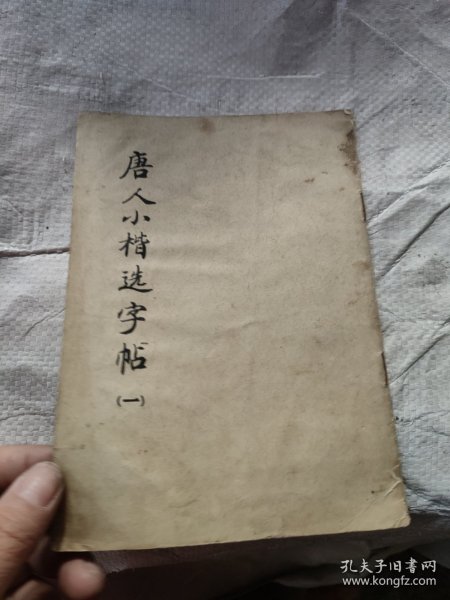 唐人小楷选字帖
(一)
孔夫子旧书网
www.kongfz.com